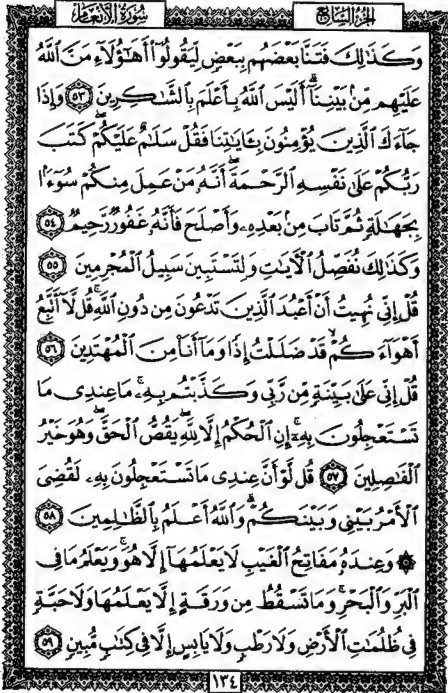 سُورَةُ الأَنعَامِ
الجزء السابع
وَكَذَٰلِكَ فَتَنَّا بَعْضَهُم بِبَعْضٍ لِّيَقُولُوٓا۟ أَهَٰٓؤُلَآءِ مَنَّ ٱللَّهُ
عَلَيْهِم مِّنۢ بَيْنِنَآ ۗ أَلَيْسَ ٱللَّهُ بِأَعْلَمَ بِٱلشَّٰكِرِينَ ٥٣ وَإِذَا
جَآءَكَ ٱلَّذِينَ يُؤْمِنُونَ بِـَٔايَٰتِنَا فَقُلْ سَلَٰمٌ عَلَيْكُمْ ۖ كَتَبَ
رَبُّكُمْ عَلَىٰ نَفْسِهِ ٱلرَّحْمَةَ ۖ أَنَّهُۥ مَنْ عَمِلَ مِنكُمْ سُوٓءًۢا
بِجَهَٰلَةٍ ثُمَّ تَابَ مِنۢ بَعْدِهِۦ وَأَصْلَحَ فَأَنَّهُۥ غَفُورٌ رَّحِيمٌ ٥٤
وَكَذَٰلِكَ نُفَصِّلُ ٱلْءَايَٰتِ وَلِتَسْتَبِينَ سَبِيلُ ٱلْمُجْرِمِينَ ٥٥
قُلْ إِنِّى نُهِيتُ أَنْ أَعْبُدَ ٱلَّذِينَ تَدْعُونَ مِن دُونِ ٱللَّهِ ۚ قُل لَّآ أَتَّبِعُ
أَهْوَآءَكُمْ ۙ قَدْ ضَلَلْتُ إِذًا وَمَآ أَنَا۠ مِنَ ٱلْمُهْتَدِينَ ٥٦
قُلْ إِنِّى عَلَىٰ بَيِّنَةٍ مِّن رَّبِّى وَكَذَّبْتُم بِهِۦ ۚ مَا عِندِى مَا
تَسْتَعْجِلُونَ بِهِۦٓ ۚ إِنِ ٱلْحُكْمُ إِلَّا لِلَّهِ ۖ يَقُصُّ ٱلْحَقَّ ۖ وَهُوَ خَيْرُ
ٱلْفَٰصِلِينَ ٥٧ قُل لَّوْ أَنَّ عِندِى مَا تَسْتَعْجِلُونَ بِهِۦ لَقُضِىَ
ٱلْأَمْرُ بَيْنِى وَبَيْنَكُمْ ۗ وَٱللَّهُ أَعْلَمُ بِٱلظَّٰلِمِينَ ٥٨
۞ وَعِندَهُۥ مَفَاتِحُ ٱلْغَيْبِ لَا يَعْلَمُهَآ إِلَّا هُوَ ۚ وَيَعْلَمُ مَا فِى
ٱلْبَرِّ وَٱلْبَحْرِ ۚ وَمَا تَسْقُطُ مِن وَرَقَةٍ إِلَّا يَعْلَمُهَا وَلَا حَبَّةٍ
فِى ظُلُمَٰتِ ٱلْأَرْضِ وَلَا رَطْبٍ وَلَا يَابِسٍ إِلَّا فِى كِتَٰبٍ مُّبِينٍ ٥٩
١٣٤